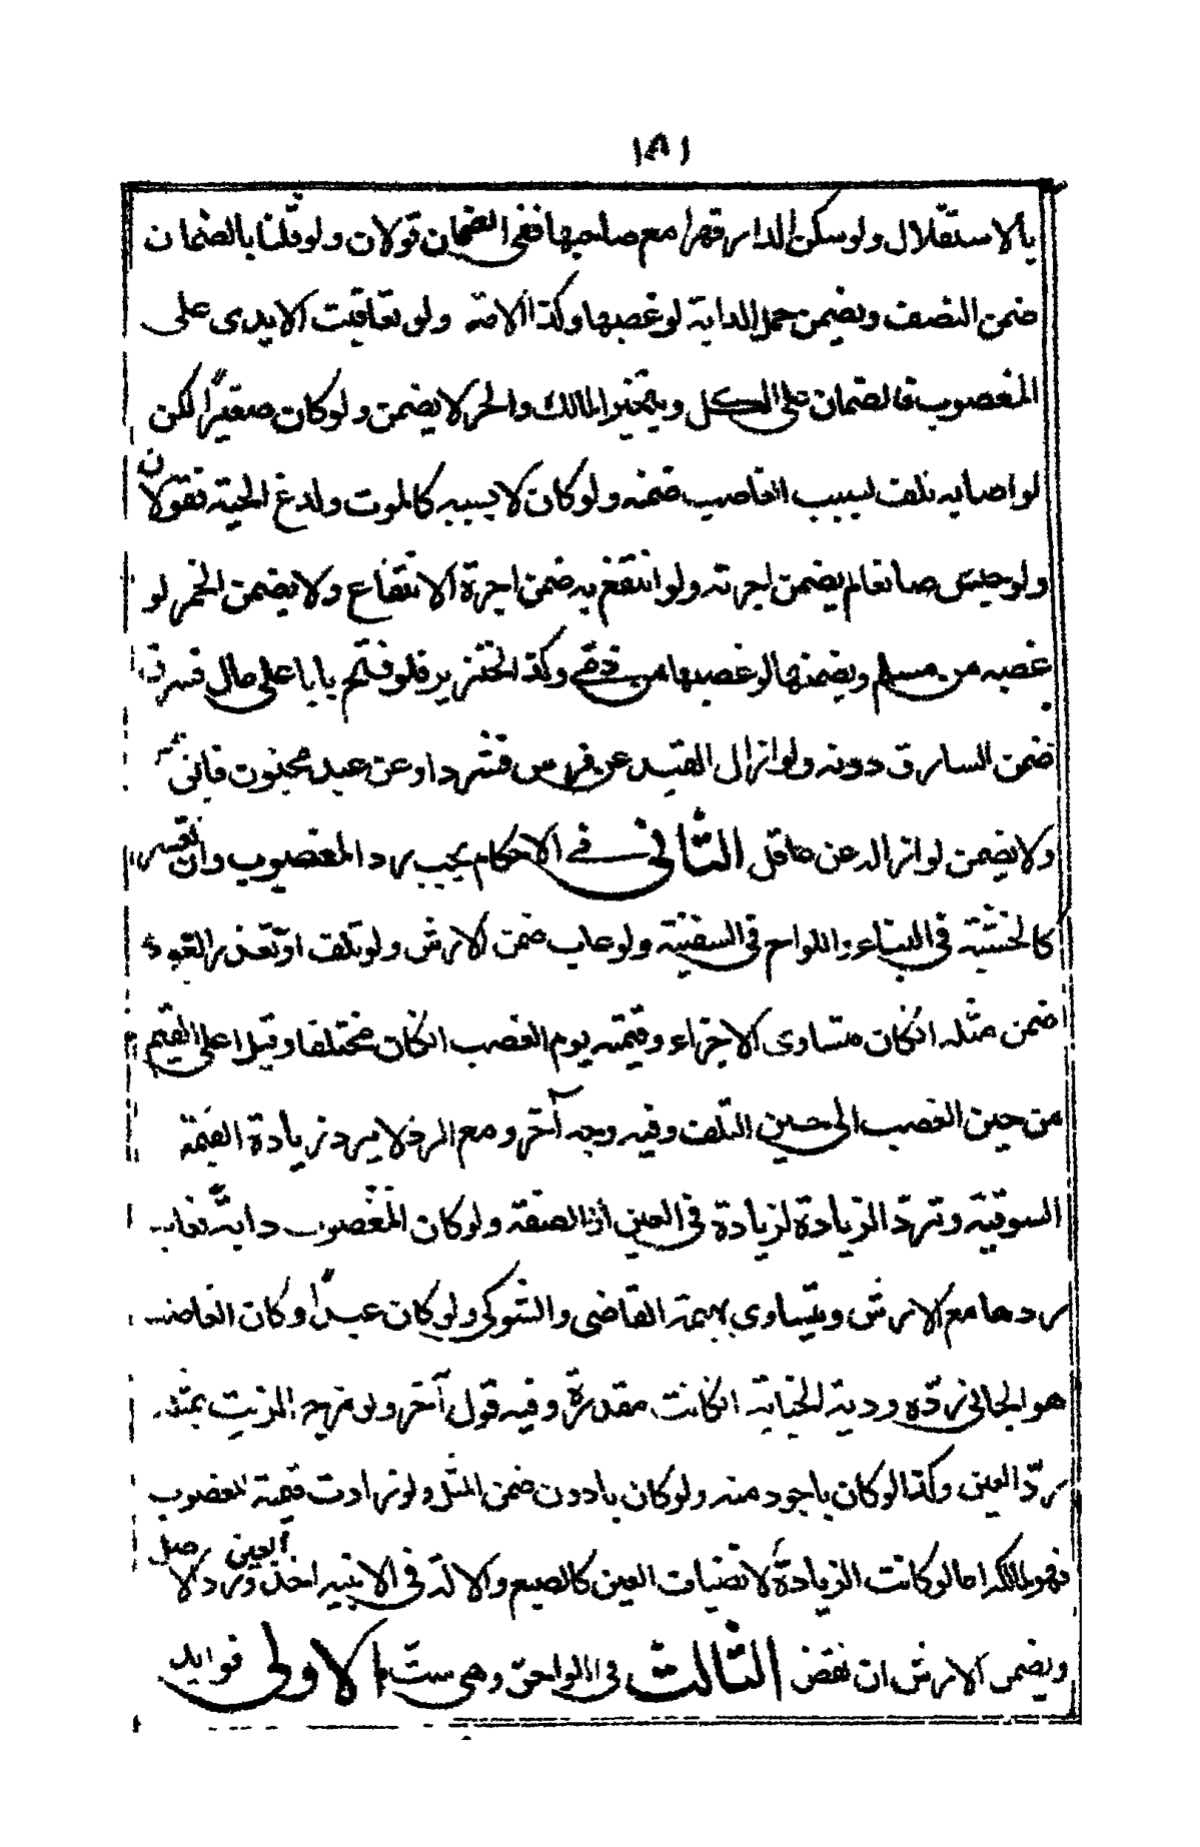 ١٨١
بالاستقلال ولو سكن الدار قهرا مع صاحبها ففي الضمان قولان ولو قلنا بالضمان
ضمن النصف ويضمن حمل الدابة لو غصبها وكذا الامة ولو تعاقبت الايدى على
المغصوب فالضمان على الكل ويتخير المالك والحر لا يضمن ولو كان صغيراً لكن
لو اصابه تلف بسبب الغاصب ضمنه ولو كان لا بسببه كالموت ولدغ الحية فقولان
ولو حبس صانعا لم يضمن اجرته ولو انتفع به ضمن اجرة الانتفاع ولا يضمن الخمر لو
غصبه من مسلم ويضمنها لو غصبها من ذمي وكذا الخنزير فلو فتح بابا على مال فسرق
ضمن السارق دونه ولو ازال القيد عن فرس فشرد او عن عبد مجنون فابق
ولا يضمن لو ازاله عن عاقل الثاني في الاحكام يجب رد المغصوب وان تعسر
كالخشبة في البناء واللواح في السفينة ولو عاب ضمن الارش ولو تلف او تعذر العود
ضمن مثله انكان متساوى الاجزاء وقيمته يوم الغصب انكان مختلفا وقيل اعلى القيم
من حين الغصب الى حين التلف وفيه وجه آخر ومع الرد لا يرد زيادة القيمة
السوقية وترد الزيادة لزيادة في العين او الصفة ولو كان المغصوب دابة فعابت
ردها مع الارش ويتساوى بهيمة القاضى والشوكى ولو كان عبداً وكان الغاصب
هو الجاني ردّه ودية الجناية انكانت مقدرة وفيه قول آخر ولو مزج الزيت بمثله
ردّ العين وكذا لو كان باجود منه ولو كان بادون ضمن المثل ولو زادت قيمة المغصوب
فهو لمالكه اما لو كانت الزيادة لانضياف العين كالصبغ والالة في الابنية اخذ العين ورد الاصل
ويضمن الارش ان نقض الثالث في اللواحق وهي ستة الاولى فوايد